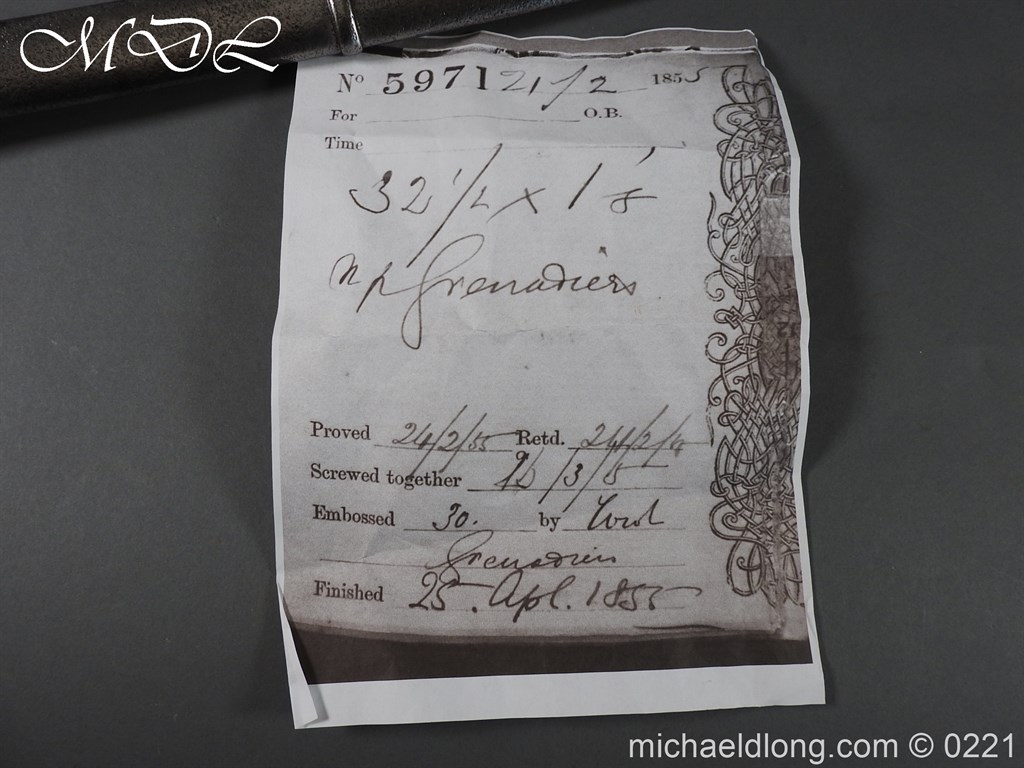 MDL
No 5971 21/2 1855
For O.B.
Time
32 1/2 x 1 1/8
n p Grenadiers
Proved 24/2/55 Retd. 24/2/
Screwed together /3/5
Embossed 30. by
Grenadiers
Finished 25. Apl. 1855
michaeldlong.com © 0221